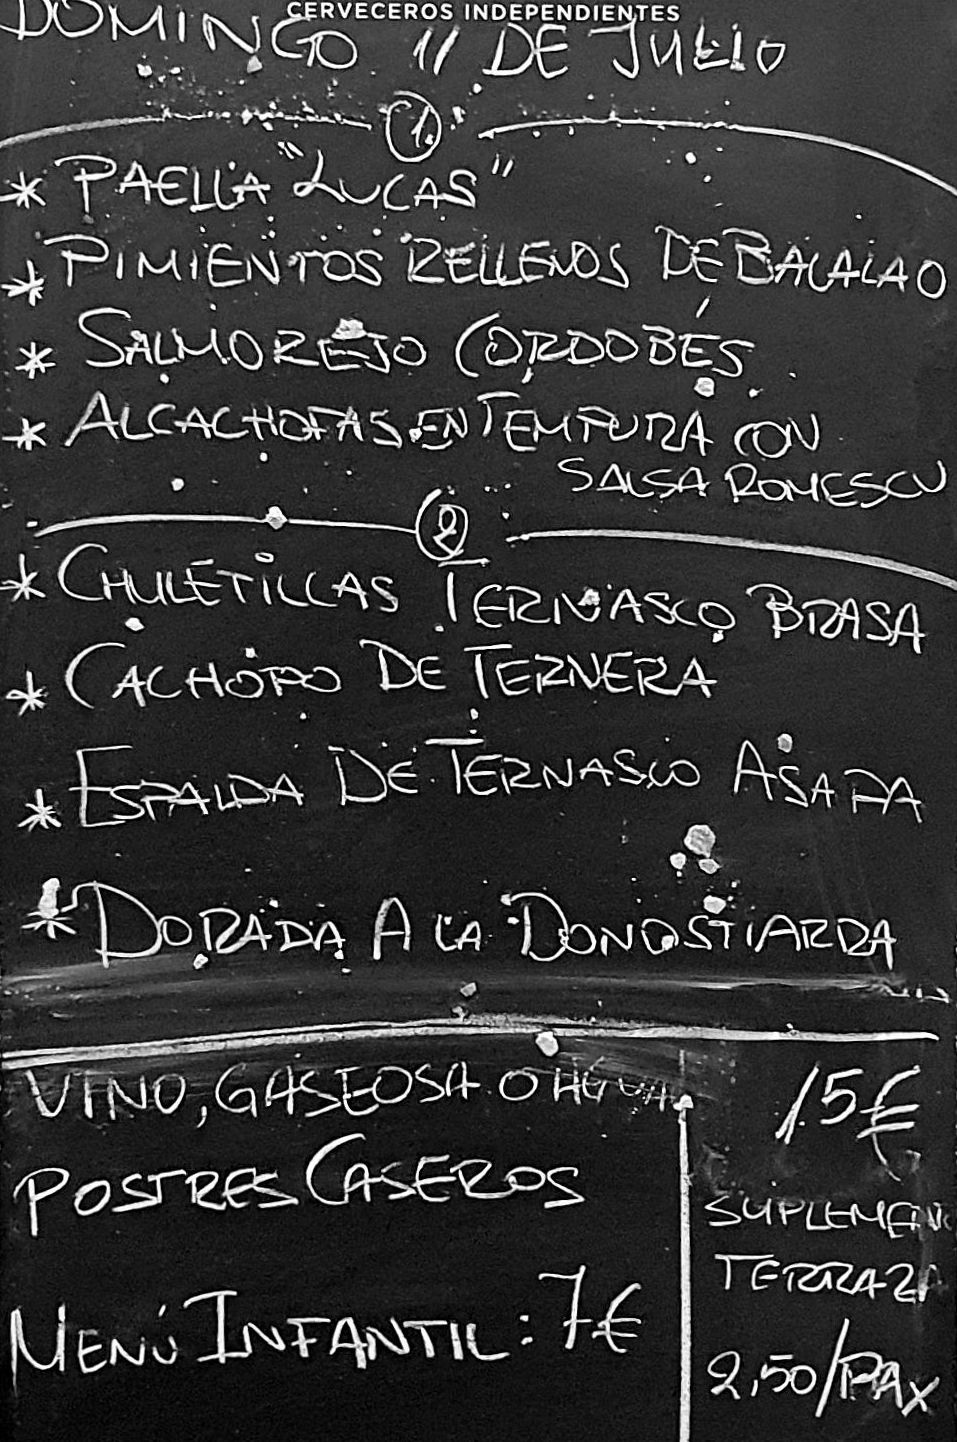 CERVECEROS INDEPENDIENTES
DOMINGO 11 DE JULIO
1.
* PAELLA "LUCAS"
* PIMIENTOS RELLENOS DE BACALAO
* SALMOREJO CORDOBÉS
* ALCACHOFAS EN TEMPURA CON
SALSA ROMESCU
2
* CHULETILLAS TERNASCO BRASA
* CACHOPO DE TERNERA
* ESPALDA DE TERNASCO ASADA
* DORADA A LA DONOSTIARRA
VINO, GASEOSA O AGUA
POSTRES CASEROS
MENÚ INFANTIL: 7€
15€
SUPLEMEN
TERRAZA
2,50/PAX